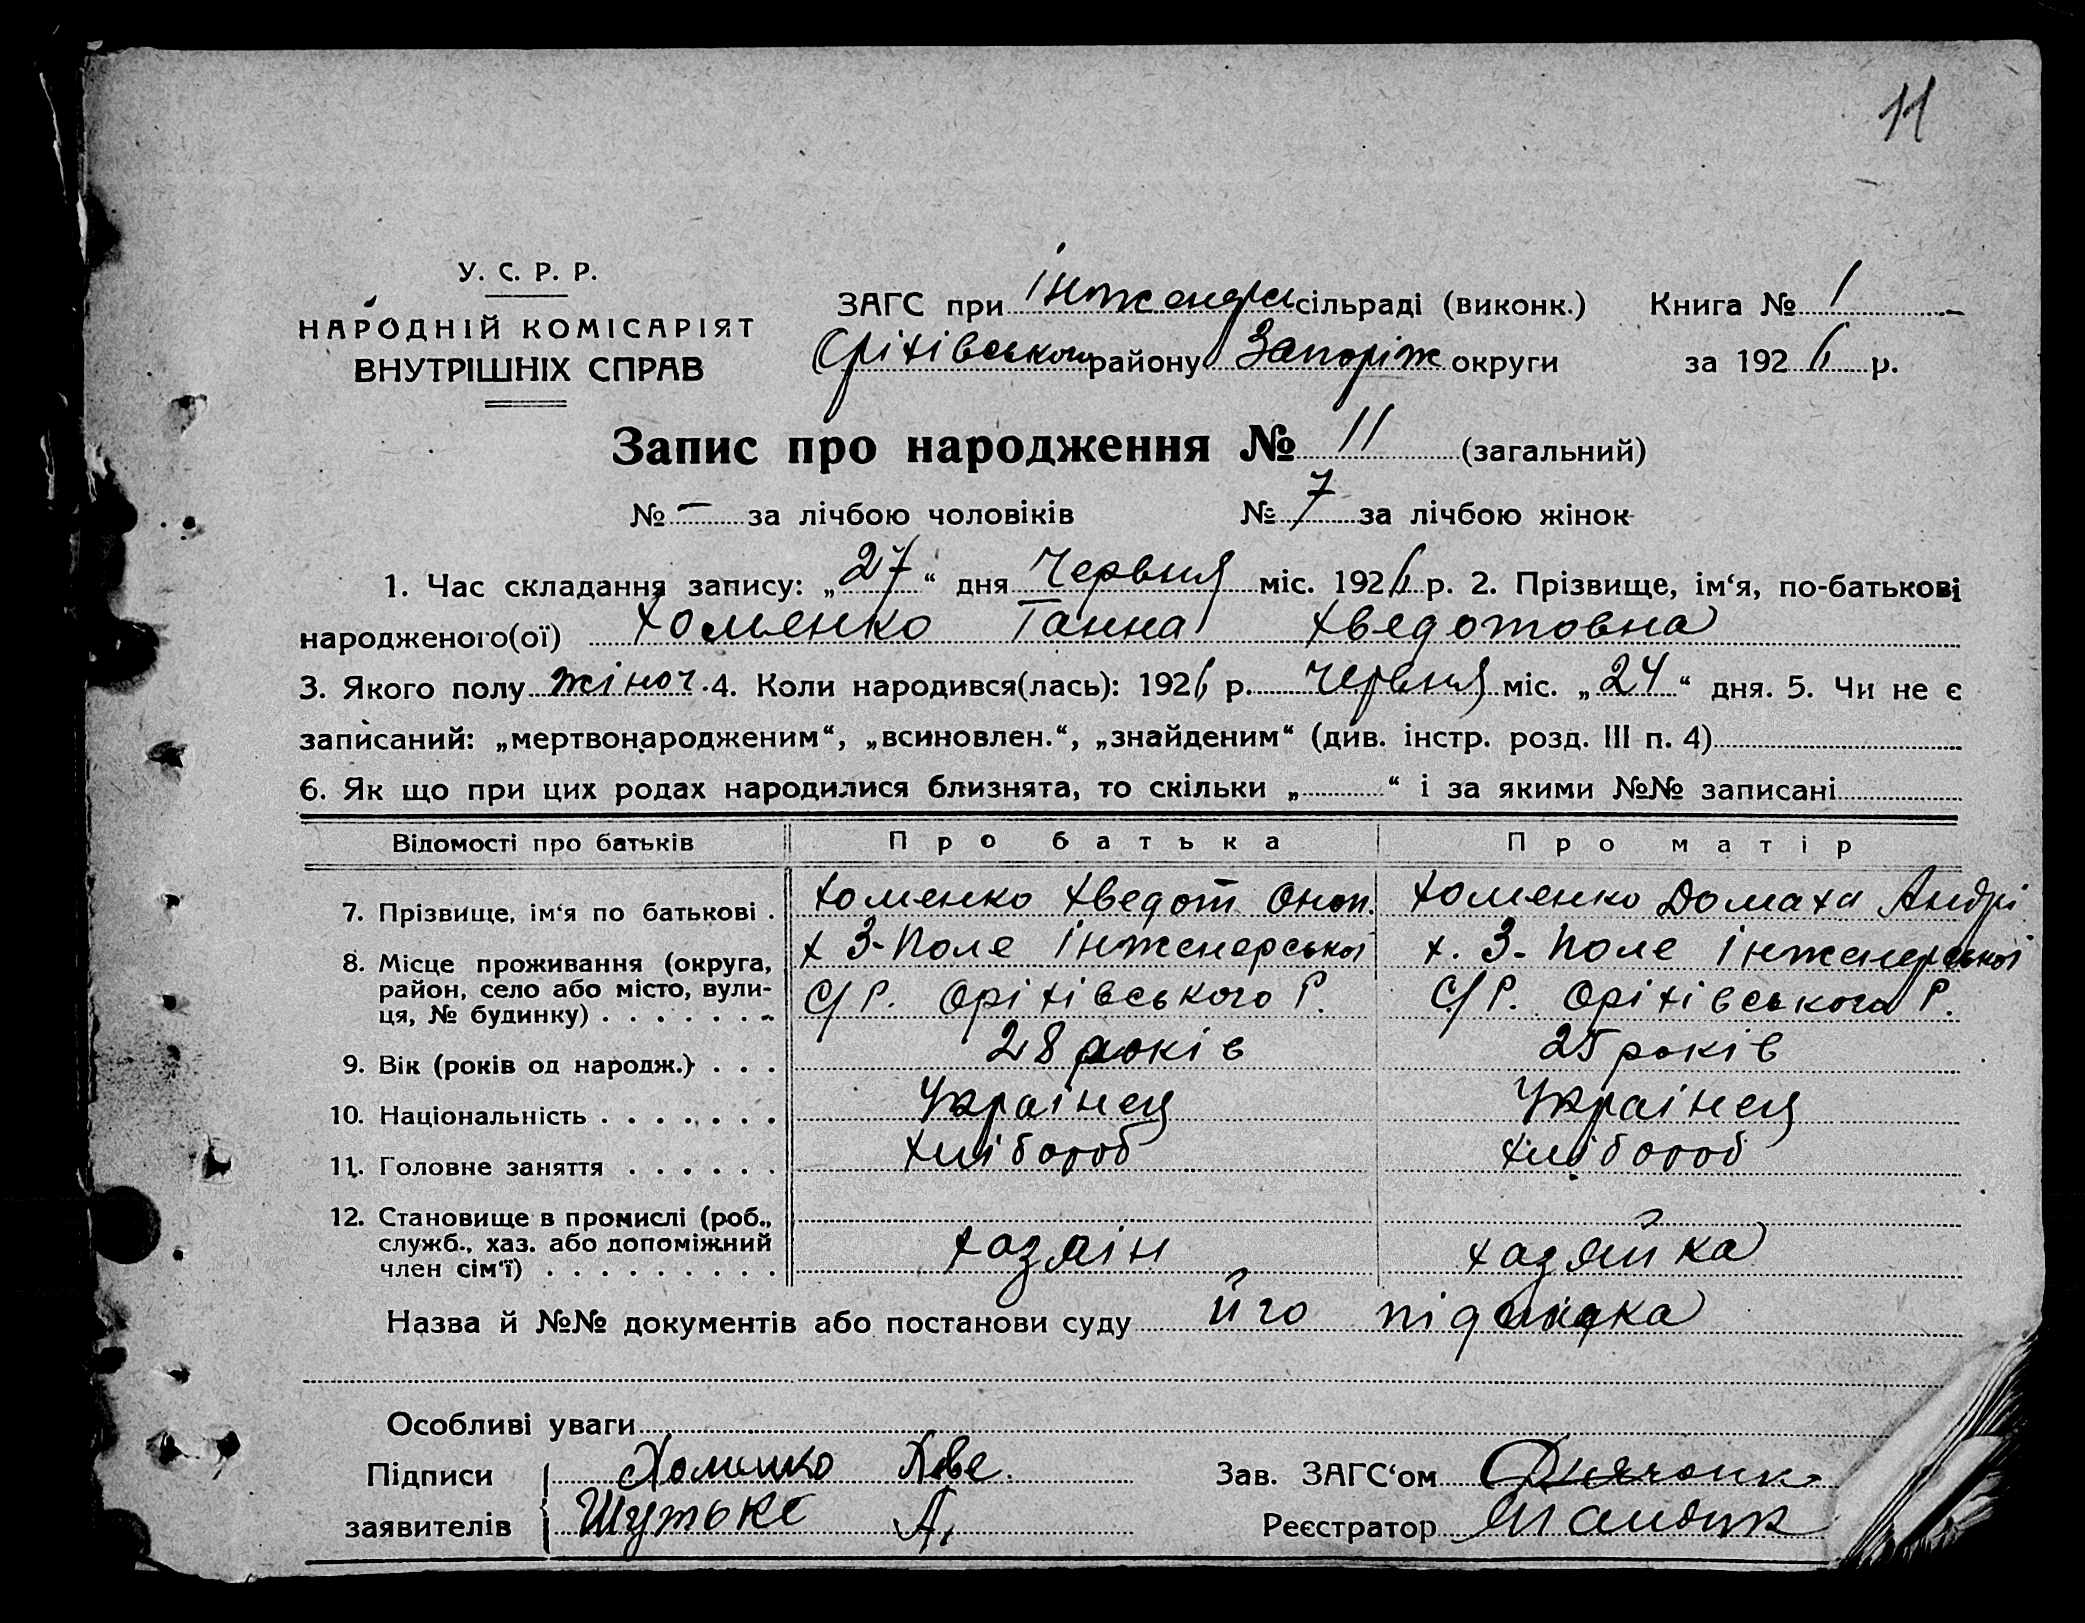 11
У. С. Р. Р.
НАРОДНІЙ КОМІСАРІЯТ
ВНУТРІШНІХ СПРАВ
ЗАГС при Інженерн сільраді (виконк.) Книга № 1
Оріхівського району Запоріж округи за 1926 р.
Запис про народження № 11 (загальний)
№ – за лічбою чоловіків № 7 за лічбою жінок
1. Час складання запису: „27“ дня Червня міс. 1926 р. 2. Прізвище, ім‘я, по-батькові
народженого(ої) Хоменко Ганна Хведотовна
3. Якого полу жіноч. 4. Коли народився(лась): 1926 р. Червня міс. „24“ дня. 5. Чи не є
записаний: „мертвонародженим“, „всиновлен.“, „знайденим“ (див. інстр. розд. III п. 4)
6. Як що при цих родах народилися близнята, то скільки „ “ і за якими №№ записані
Відомості про батьків Про батька Про матір
7. Прізвище, ім‘я по батькові . Хоменко Хведот Оноп. Хоменко Домаха Андрі
8. Місце проживання (округа, х 3-Поле Інженерської х. 3-Поле Інженерської
район, село або місто, вули-
ця, № будинку) . . . . . . . С/Р. Оріхівського Р. С/Р. Оріхівського Р.
9. Вік (років од народж.) . . . 28 років 25 років
10. Національність . . . . . . . Українец Українец
11. Головне заняття . . . . . . Хлібороб Хлібороб
12. Становище в промислі (роб.,
служб., хаз. або допоміжний
член сім‘ї) . . . . . . . . . хазяін хазяйка
Назва й №№ документів або постанови суду його
Особливі уваги
Підписи Хоменко Хве. Зав. ЗАГС‘ом
заявителів Шутько А. Реєстратор